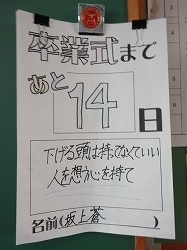 卒業式まで
あと
14
日
下げる頭は持ってなくていい
人を想う心を持て
名前(坂上蒼)